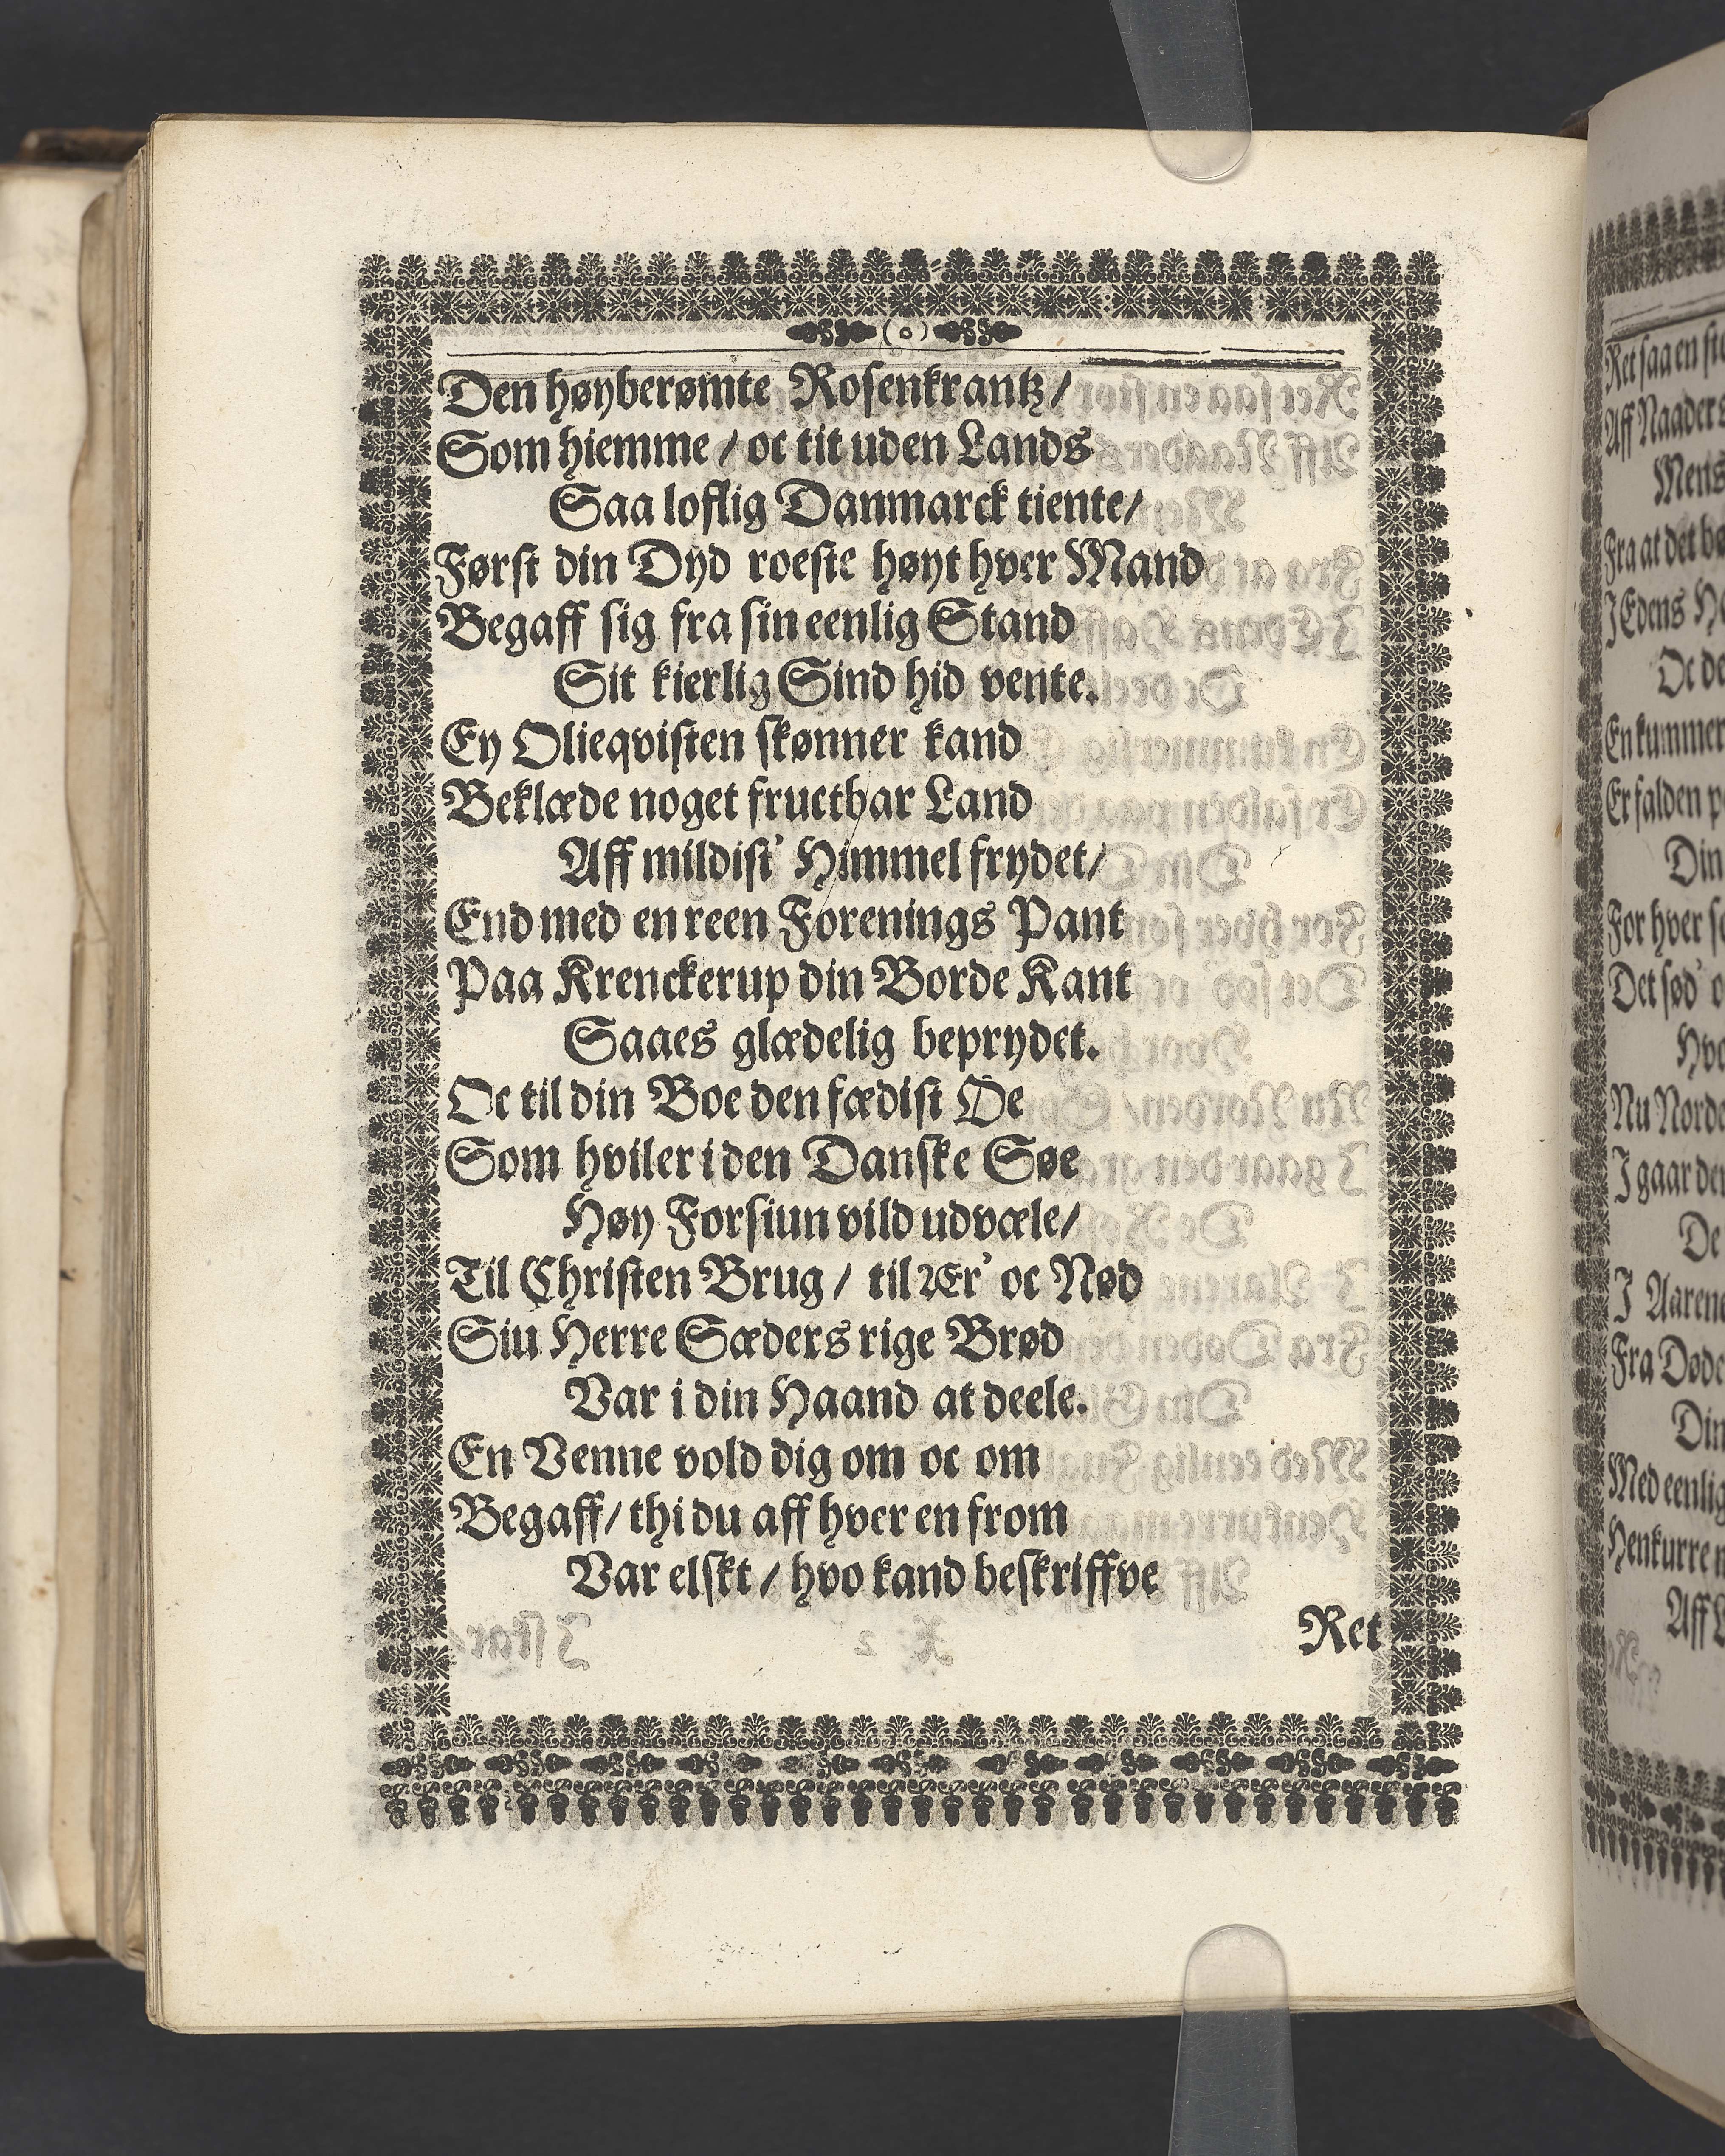 (o)
Den høyberømte Rosenkrantz/
Som hiemme / oc tit uden Lands
Saa loflig Danmarck tiente/
Først din Dyd roeste høyt hver Mand
Begaff sig fra sin eenlig Stand
Sit kierlig Sind hid vente.
Ey Olieqvisten skønner kand
Beklæde noget fructbar Land
Aff mildist' Himmel frydet/
End med en reen Forenings Pant
Paa Krenckerup din Borde Kant
Saaes glædelig beprydet.
Oc til din Boe den fædist Øe
Som hviler i den Danske Søe
Høy Forsiun vild udvæle/
Til Christen Brug / til Ær' oc Nød
Siu Herre Sæders rige Brød
Var i din Haand at deele.
En Venne vold dig om oc om
Begaff/ thi du aff hver en from
Var elskt / hvo kand beskriffve
Ret
Ret saa en
Aff Naaders
Mens
Fra at det
I Edens
Oc
En kummer
Er falden
Din
For hver
Det sød'
Nu
I gaar
De
I Aarene
Fra
Din
Med eenlig
Henkurre
Aff